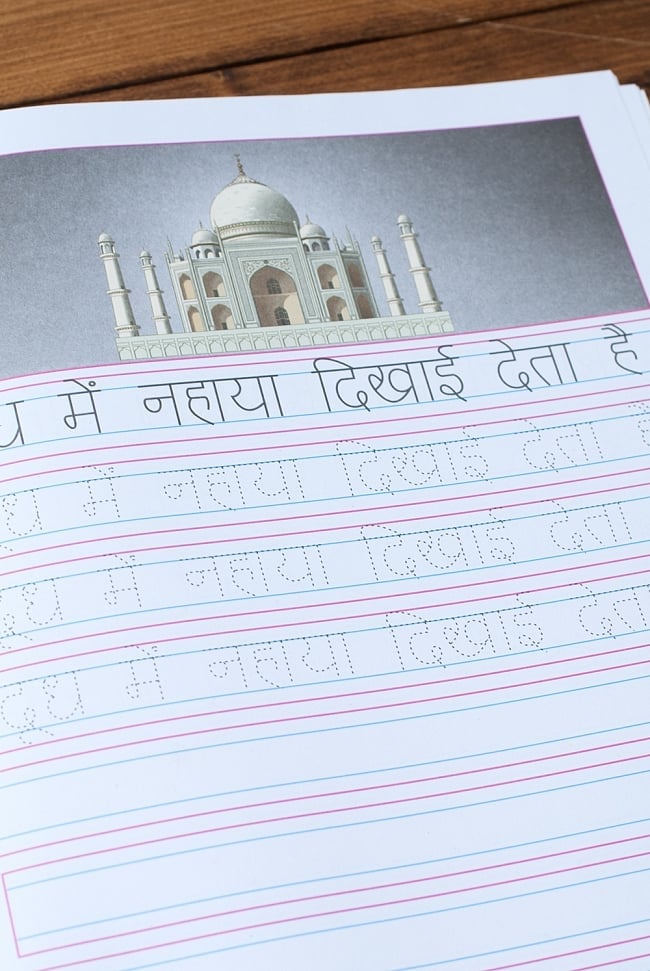 में नहाया दिखाई देता है
दूध में नहाया दिखाई देता
दूध में नहाया दिखाई देता
दूध में नहाया दिखाई देता